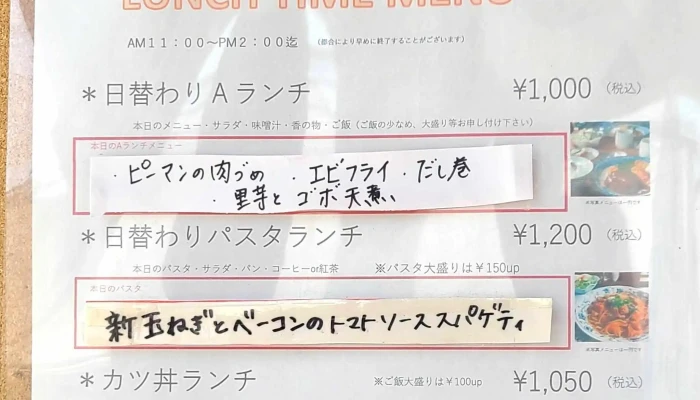 LUNCH TIME MENU
AM11：00～PM2：00迄 （都合により早めに終了することがございます）
＊日替わりAランチ ¥1,000（税込）
本日のメニュー・サラダ・味噌汁・香の物・ご飯（ご飯の少なめ、大盛り等お申し付け下さい）
本日のAランチメニュー
・ピーマンの肉づめ ・エビフライ ・だし巻
・里芋とゴボ天煮い
※写真メニューは一例です
＊日替わりパスタランチ ¥1,200（税込）
本日のパスタ・サラダ・パン・コーヒーor紅茶 ※パスタ大盛りは￥150up
本日のパスタ
新玉ねぎとベーコンのトマトソーススパゲティ
※写真メニューは一例です
＊カツ丼ランチ ※ご飯大盛りは¥100up ¥1,050（税込）